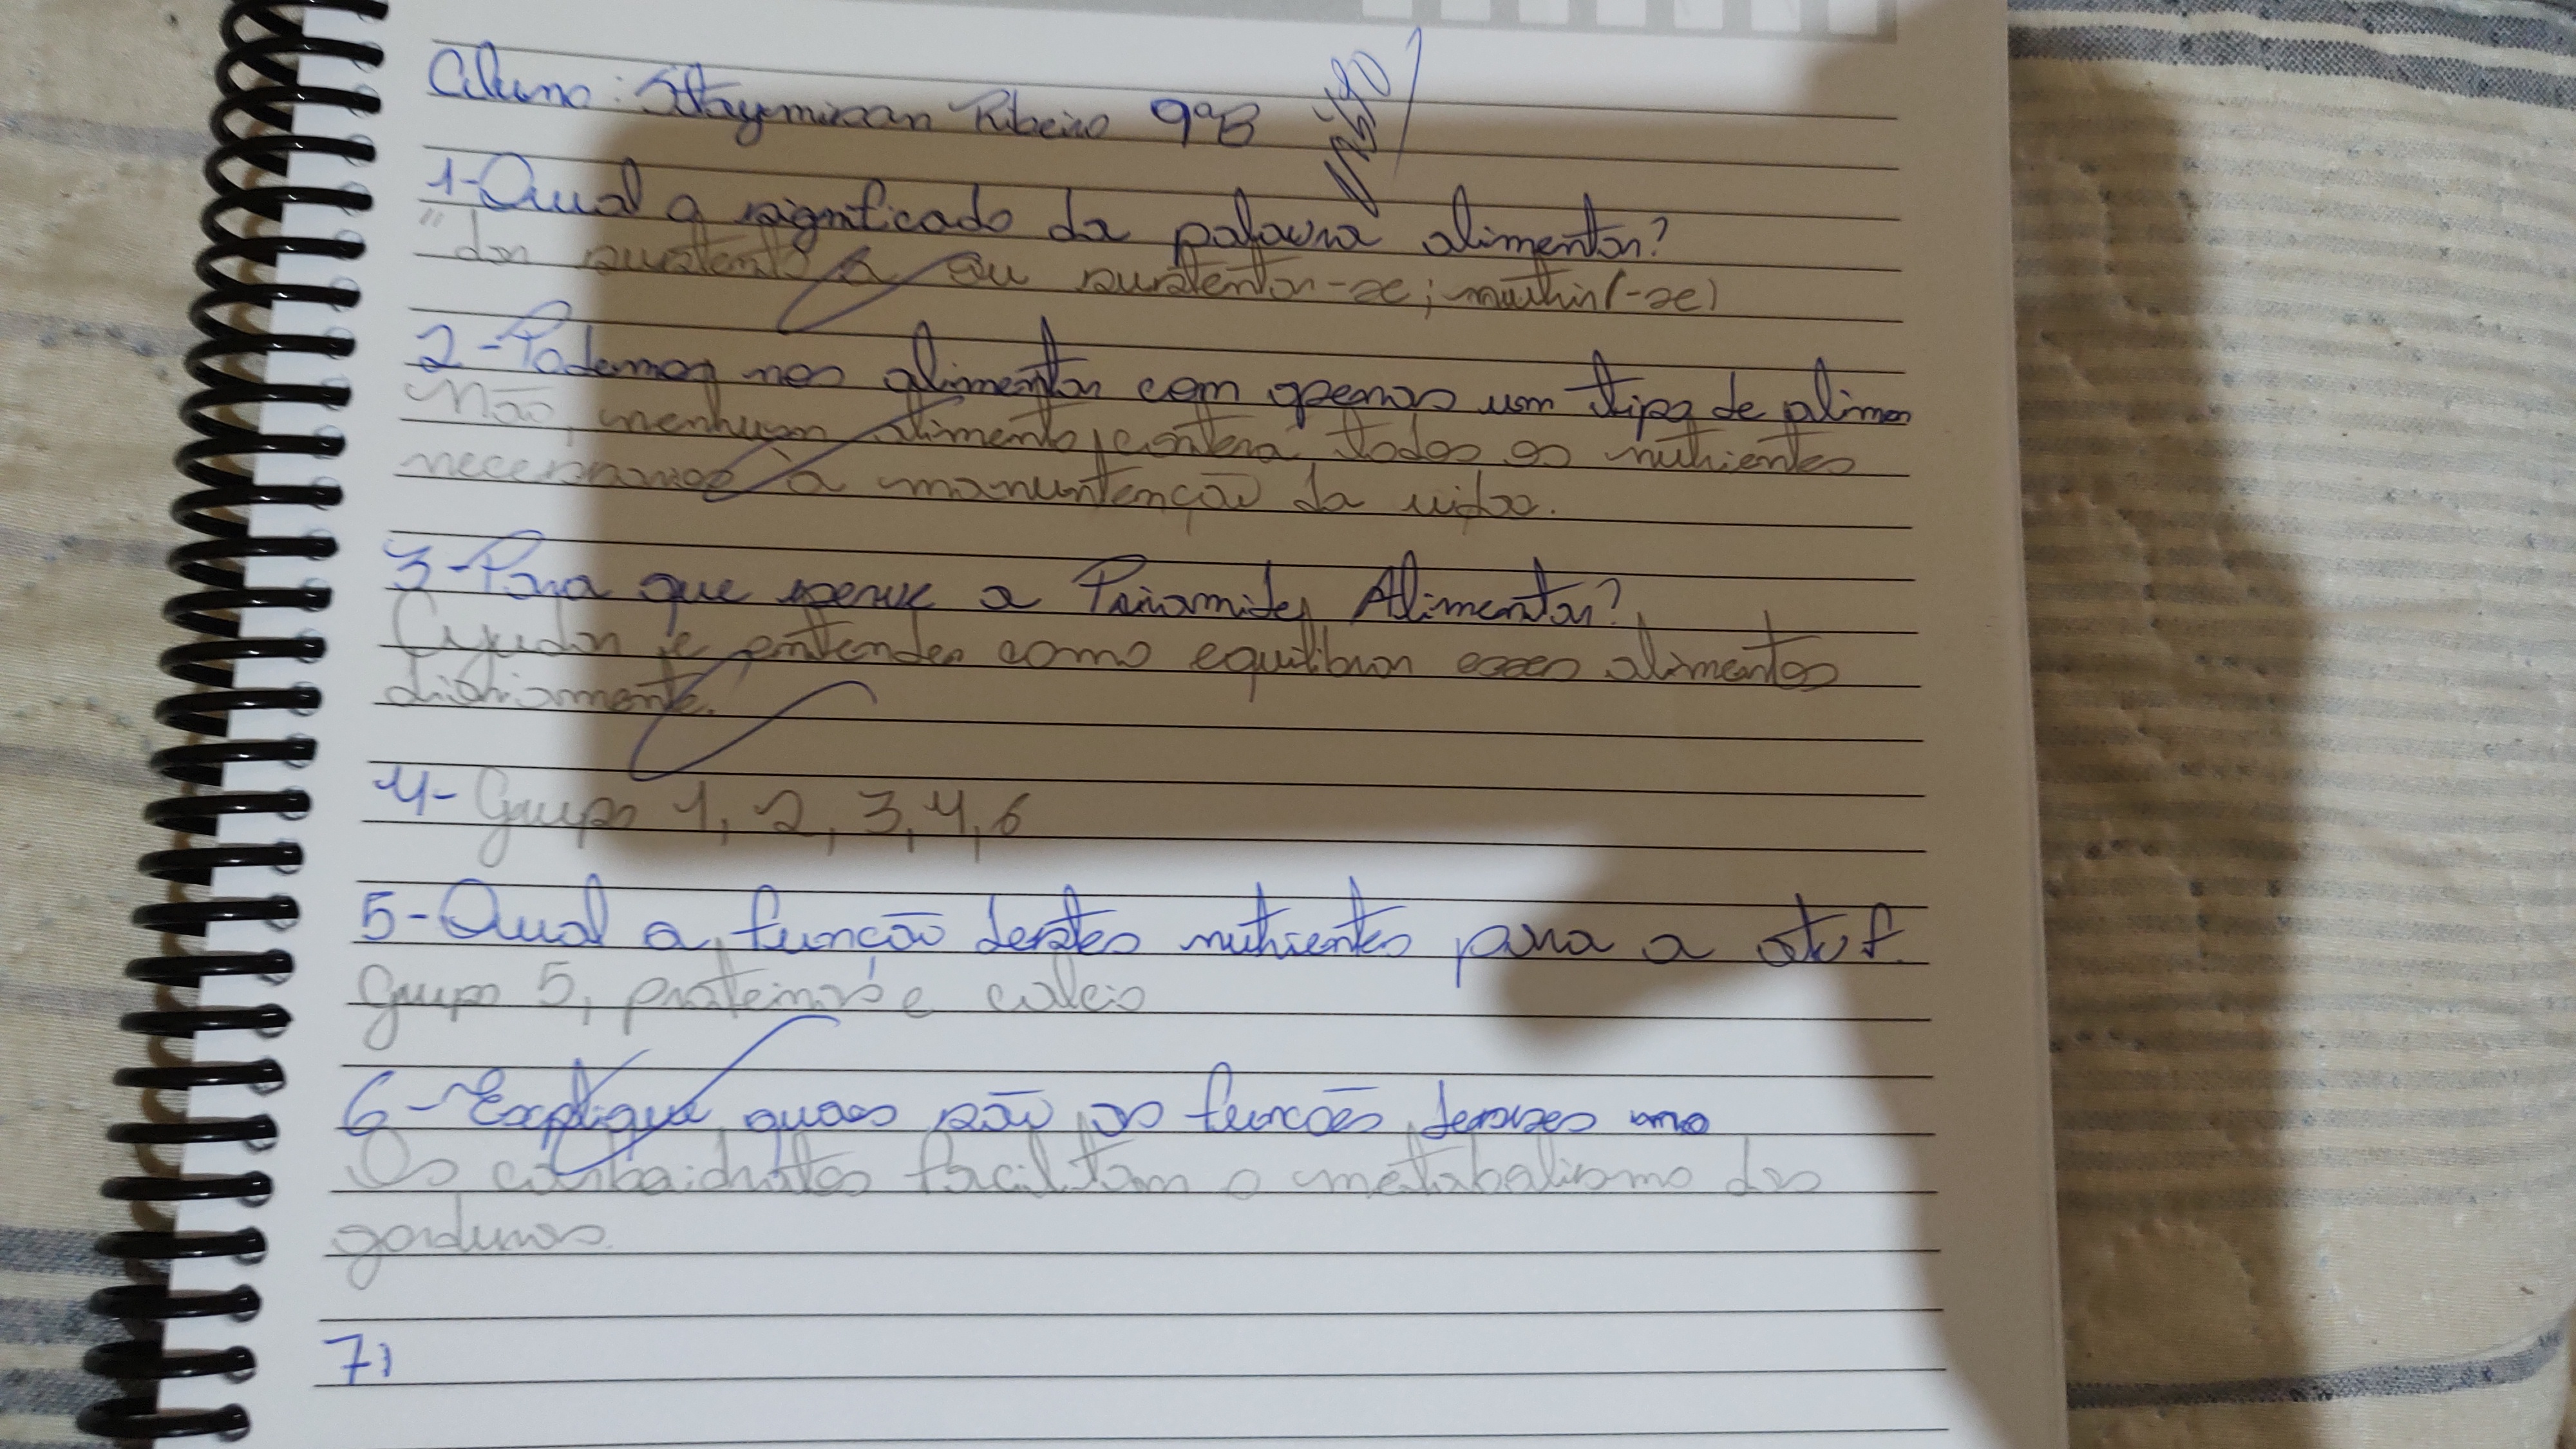 Aluno: Ribeiro 9ºB
1-Qual o significado da palavra alimentar?
"dar sustento, ou sustentar-se; nutrir(-se)
2-Podemos nos alimentar com apenas um tipo de alimen
Não, nenhum alimento contem todos os nutrientes
necessarios à manutenção da vida.
3-Para que serve a Piramide Alimentar?
Ajudar e entender como equilibrar esses alimentos
diariamente.
4- Grupo 1, 2, 3, 4, 6
5-Qual a função destes nutrientes para a
Grupo 5, proteinas e calcio
6-Explique quais são as funcões desses
Os carboidratos facilitam o metabolismo das
gorduras.
7)